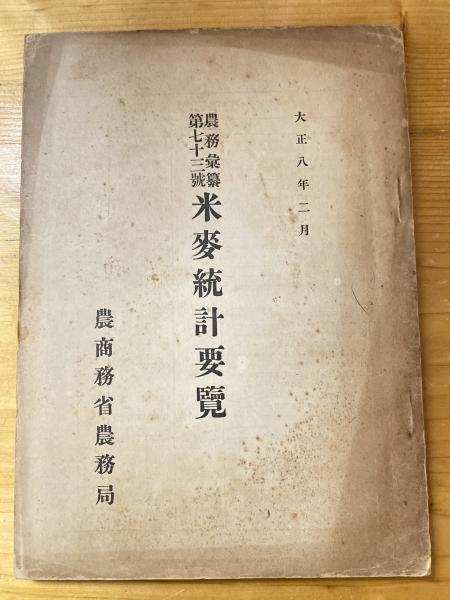 大正八年二月
農務彙纂
第七十三號
米麥統計要覽
農商務省農務局